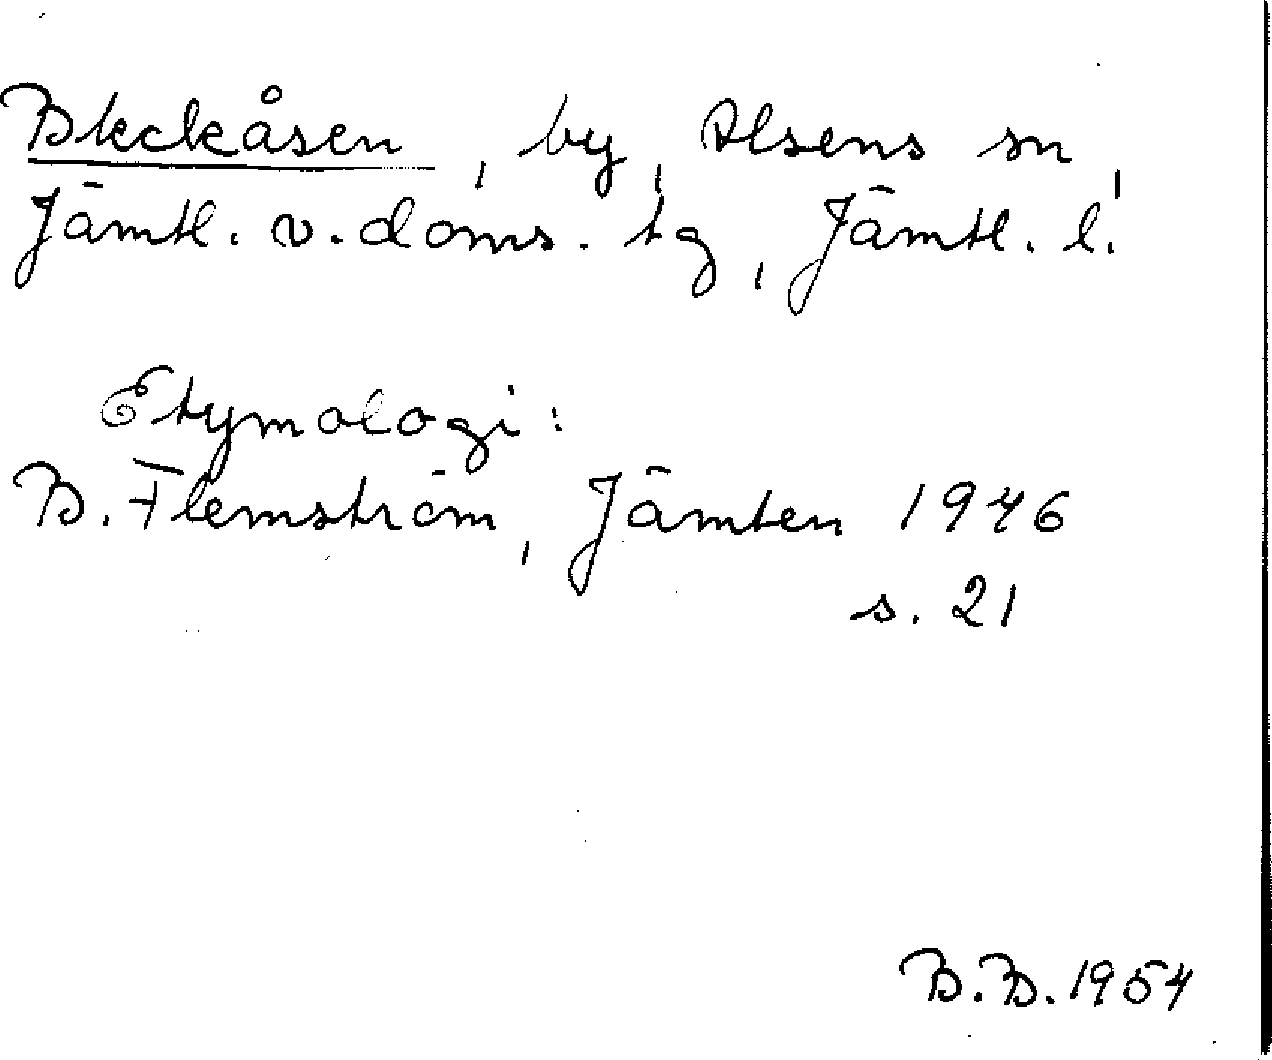 Bleckåsen, by, Alsens sn,
Jämtl. v. doms. tg, Jämtl. l.
Etymologi:
B. Flemström, Jämten 1946
s. 21
B.B. 1954